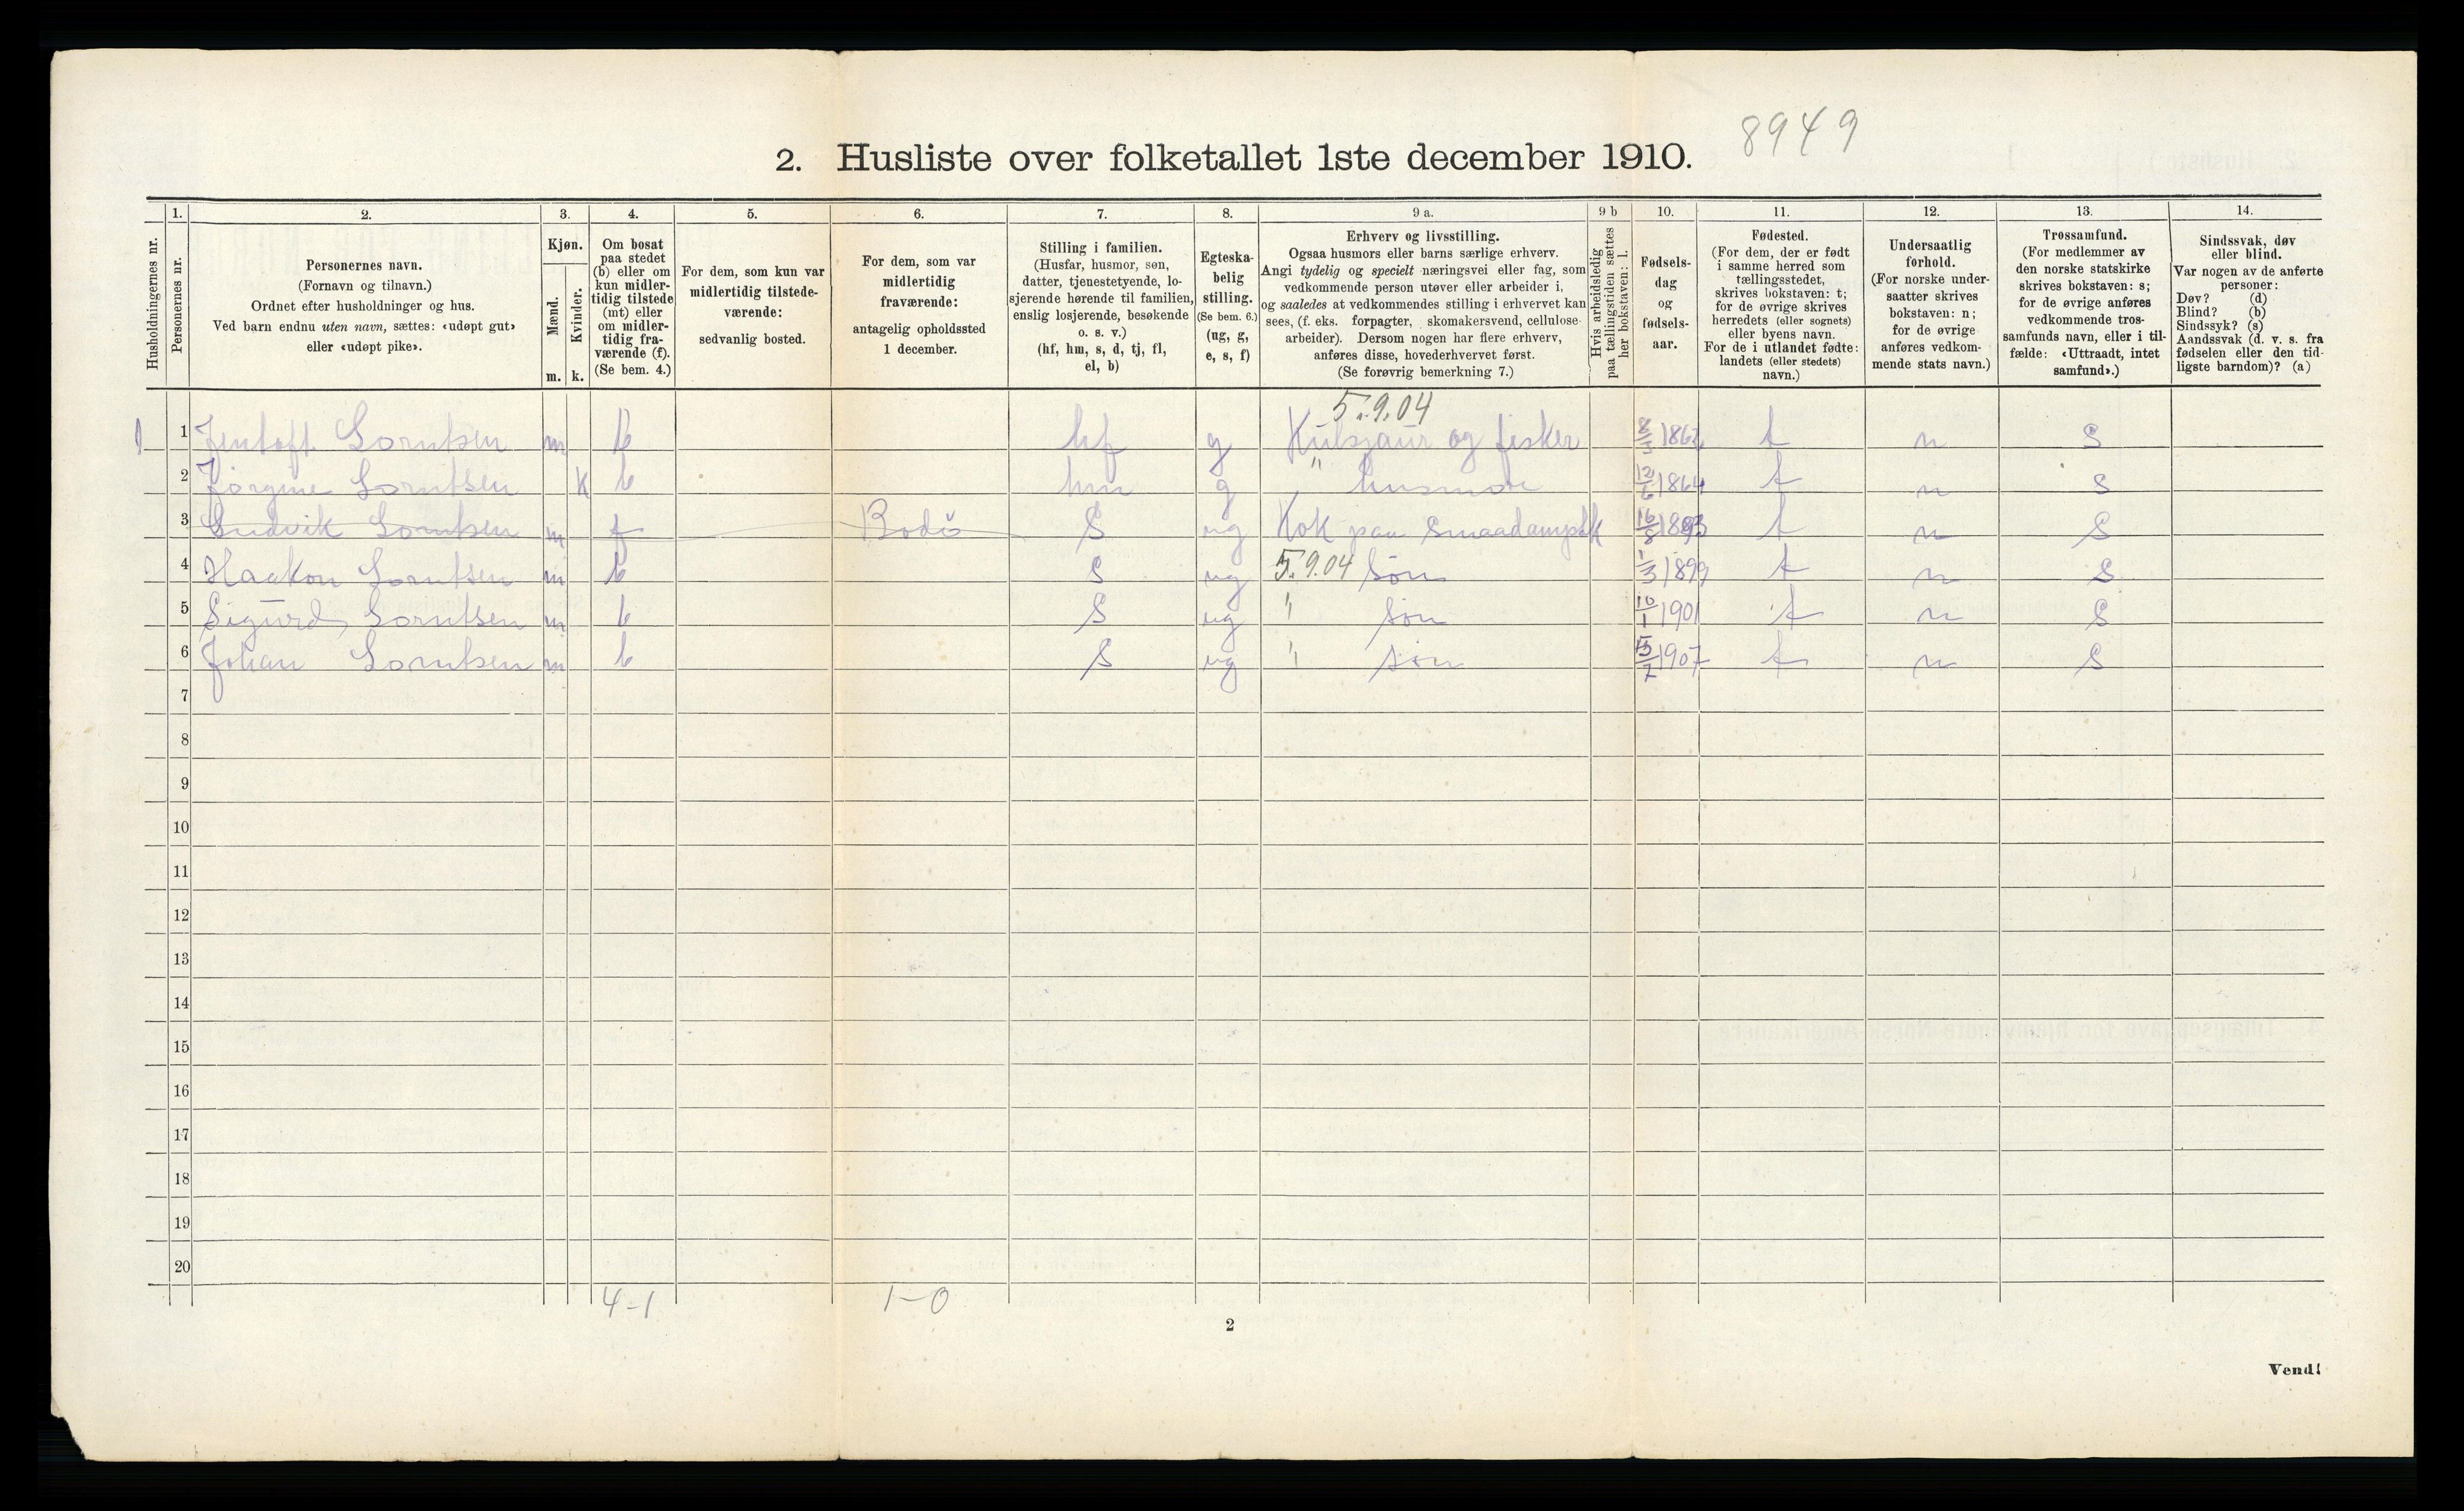 8949
2. Husliste over folketallet 1ste december 1910.
Husholdningernes nr.
1. Personernes nr.
2. Personernes navn.
(Fornavn og tilnavn.)
Ordnet efter husholdninger og hus.
Ved barn endnu uten navn, sættes: «udøpt gut»
eller «udøpt pike».
3. Kjøn.
Mænd. m.
Kvinder. k.
4. Om bosat
paa stedet
(b) eller om
kun midler-
tidig tilstede
(mt) eller
om midler-
tidig fra-
værende (f).
(Se bem. 4.)
5. For dem, som kun var
midlertidig tilstede-
værende:
sedvanlig bosted.
6. For dem, som var
midlertidig
fraværende:
antagelig opholdssted
1 december.
7. Stilling i familien.
(Husfar, husmor, søn,
datter, tjenestetyende, lo-
sjerende hørende til familien,
enslig losjerende, besøkende
o. s. v.)
(hf, hm, s, d, tj, fl,
el, b)
8. Egteska-
belig
stilling.
(Se bem. 6.)
(ug, g,
e, s, f)
9 a. Erhverv og livsstilling.
Ogsaa husmors eller barns særlige erhverv.
Angi tydelig og specielt næringsvei eller fag, som
vedkommende person utøver eller arbeider i,
og saaledes at vedkommendes stilling i erhvervet kan
sees, (f. eks. forpagter, skomakersvend, cellulose-
arbeider). Dersom nogen har flere erhverv,
anføres disse, hovederhvervet først.
(Se forøvrig bemerkning 7.)
9 b Hvis arbeidsledig
paa tællingstiden sættes
her bokstaven: l.
10. Fødsels-
dag
og
fødsels-
aar.
11. Fødested.
(For dem, der er født
i samme herred som
tællingsstedet,
skrives bokstaven: t;
for de øvrige skrives
herredets (eller sognets)
eller byens navn.
For de i utlandet fødte:
landets (eller stedets)
navn.)
12. Undersaatlig
forhold.
(For norske under-
saatter skrives
bokstaven: n;
for de øvrige
anføres vedkom-
mende stats navn.)
13. Trossamfund.
(For medlemmer av
den norske statskirke
skrives bokstaven: s;
for de øvrige anføres
vedkommende tros-
samfunds navn, eller i til-
fælde: «Uttraadt, intet
samfund».)
14. Sindssvak, døv
eller blind.
Var nogen av de anførte
personer:
Døv? (d)
Blind? (b)
Sindssyk? (s)
Aandssvak (d. v. s. fra
fødselen eller den tid-
ligste barndom)? (a)
5.9.04
1 Jentoft Lorntsen m b hf g og fisker t n S
2 Jørgine Lorntsen k b hm g " husmor 12/6 1864 t n S
3 Ludvik Lorntsen m f Bodö S ug Kok paa Smaadampsk 16/8 1893 t n S
4 Haakon Lorntsen m b S ug 5.9.04 Søn 1/3 1899 t n S
5 Sigurd Lorntsen m b S ug " søn 10/1 1901 t n S
6 Johan Lorntsen m b S ug " søn 1907 t n S
7
8
9
10
11
12
13
14
15
16
17
18
19
20
4-1 1-0
2
Vend!